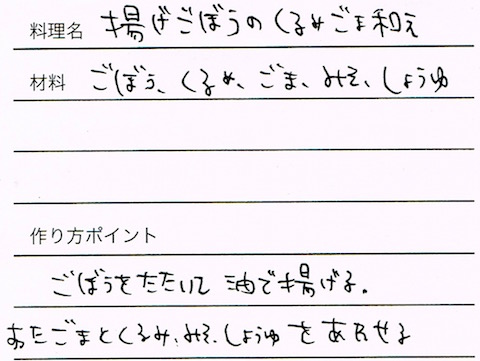 料理名 揚げごぼうのくるみごま和え
材料 ごぼう、くるみ、ごま、みそ、しょうゆ
作り方ポイント
ごぼうをたたいて油で揚げる。
あたごまとくるみ、みそ、しょうゆをあわせる